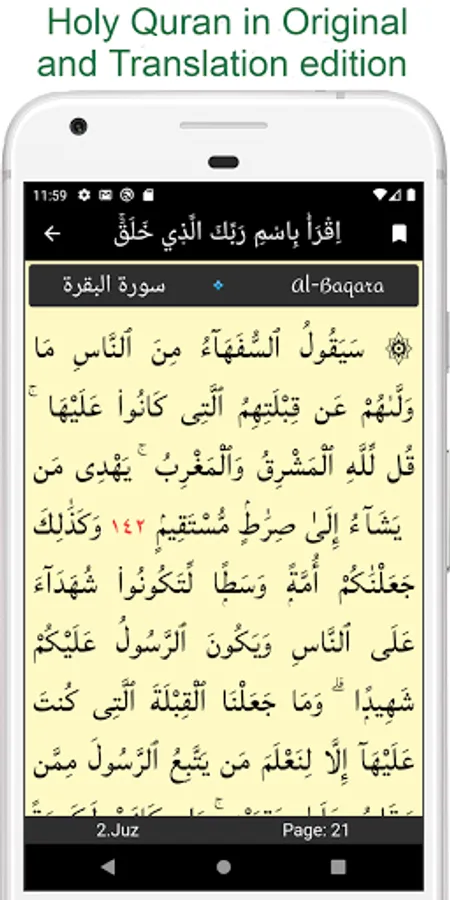 Holy Quran in Original
and Translation edition
11:59
اِقْرَأْ بِاسْمِ رَبِّكَ الَّذِي خَلَقَۚ
سورة البقرة
Al-Baqara
۞ سَيَقُولُ ٱلسُّفَهَآءُ مِنَ ٱلنَّاسِ مَا
وَلَّىٰهُمْ عَن قِبْلَتِهِمُ ٱلَّتِى كَانُوا۟ عَلَيْهَا ۚ
قُل لِّلَّهِ ٱلْمَشْرِقُ وَٱلْمَغْرِبُ ۚ يَهْدِى مَن
يَشَآءُ إِلَىٰ صِرَٰطٍۢ مُّسْتَقِيمٍۢ ١٤٢ وَكَذَٰلِكَ
جَعَلْنَٰكُمْ أُمَّةًۭ وَسَطًۭا لِّتَكُونُوا۟ شُهَدَآءَ
عَلَى ٱلنَّاسِ وَيَكُونَ ٱلرَّسُولُ عَلَيْكُمْ
شَهِيدًۭا ۗ وَمَا جَعَلْنَا ٱلْقِبْلَةَ ٱلَّتِى كُنتَ
عَلَيْهَآ إِلَّا لِنَعْلَمَ مَن يَتَّبِعُ ٱلرَّسُولَ مِمَّن
2.Juz
Page: 21